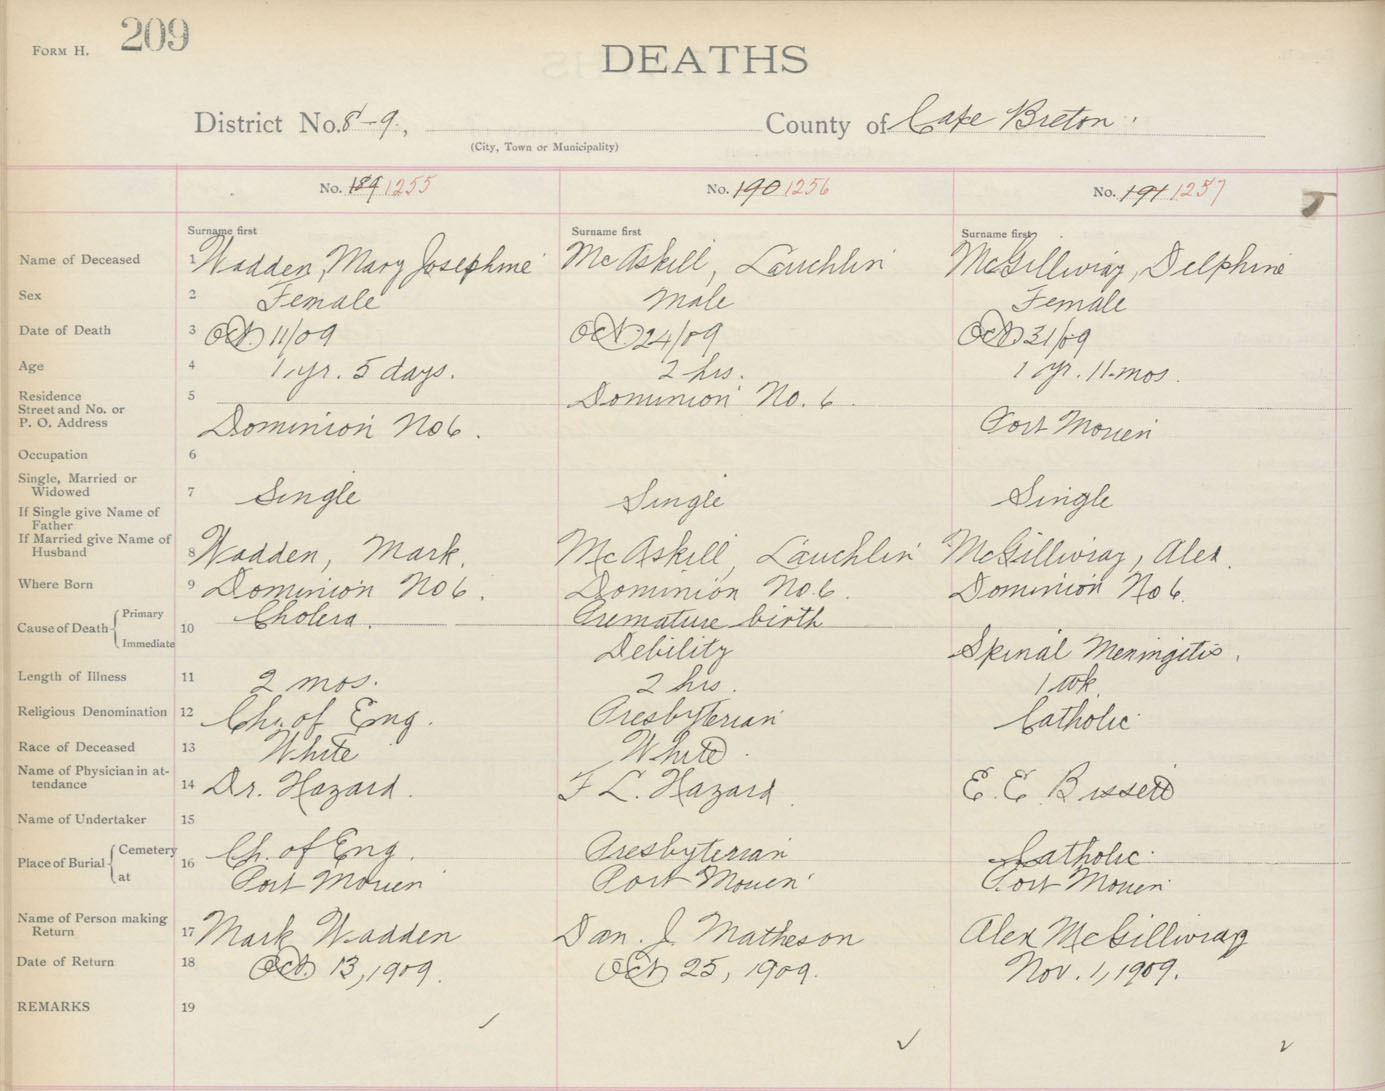 Form H. 209
DEATHS
District No. 8-9, County of Cape Breton.
(City, Town or Municipality)
No. 189 1255 No. 190 1256 No. 191 1257
Surname first Surname first Surname first
Name of Deceased 1 Wadden, Mary Josephine McAskill, Lauchlin McGillivray, Delphine
Sex 2 Female Male Female
Date of Death 3 Oct. 11/09 Oct. 24/09 Oct. 31/09
Age 4 1 yr. 5 days. 2 hrs. 1 yr. 11-mos.
Residence 5 Dominion No. 6.
Street and No. or
P. O. Address Dominion No 6. Port Morien
Occupation 6
Single, Married or
Widowed 7 Single Single Single
If Single give Name of
Father
If Married give Name of
Husband 8 Wadden, Mark. McAskill, Lauchlin McGillivray, Alex.
Where Born 9 Dominion No 6. Dominion No. 6. Dominion No 6.
Cause of Death Primary 10 Cholera. Premature birth
Immediate Debility Spinal Meningitis.
Length of Illness 11 2 mos. 2 hrs. 1 wk.
Religious Denomination 12 Ch. of Eng. Presbyterian Catholic
Race of Deceased 13 White White.
Name of Physician in at-
tendance 14 Dr. Hazard. F L. Hazard. E. E. Bissett
Name of Undertaker 15
Place of Burial Cemetery 16 Ch. of Eng. Presbyterian Catholic
at Port Morien Port Morien Port Morien
Name of Person making
Return 17 Mark Wadden Dan. J. Matheson Alex McGillivray
Date of Return 18 Oct. 13, 1909. Oct 25, 1909. Nov. 1, 1909.
REMARKS 19